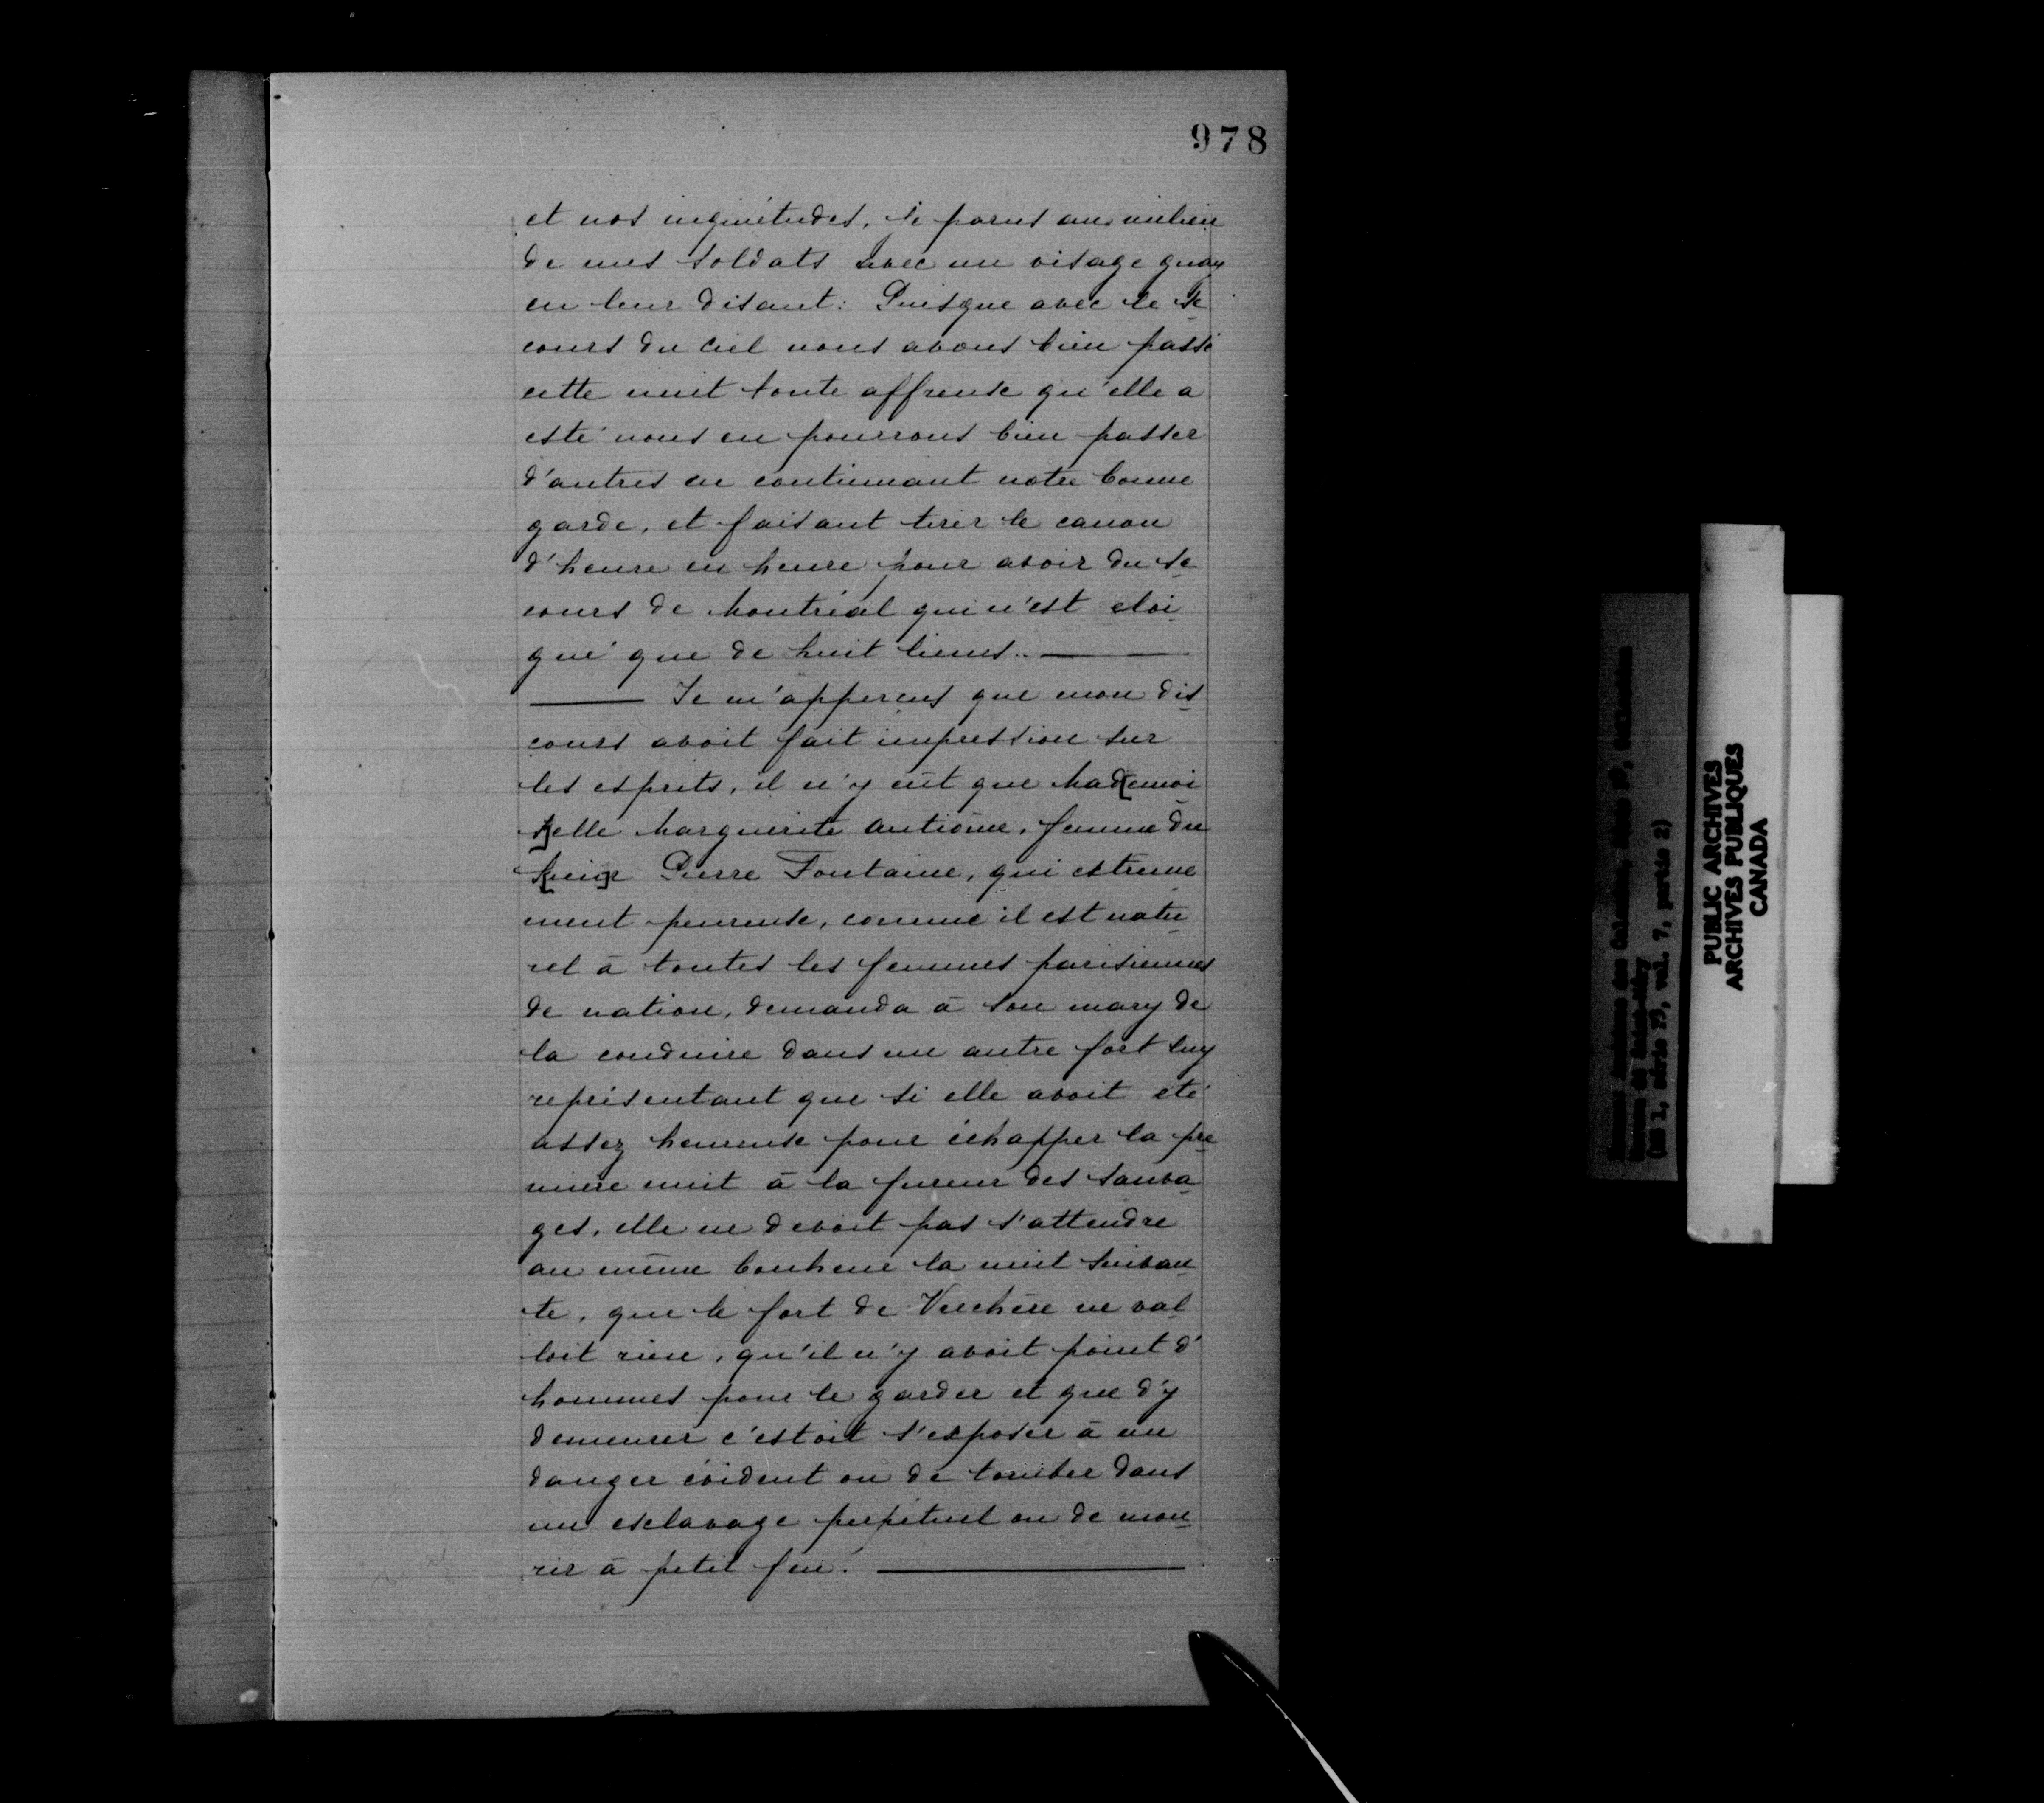 978
et nos inquiétudes. Je parus au milieu
de mes soldats avec un visage guay
en leur disant: Puisque avec le se
cours du ciel nous avons bien passé
cette nuit toute affreuse qu'elle a
esté nous en pourrons bien passer
d'autres en continuant notre bonne
garde, et faisant tirer le canon
d'heure en heure pour avoir du se
cours de Montréal qui n'est eloi
gné que de huit lieues.
Je m'apperçus que mon dis
cours avoit fait impression sur
les esprits, il n'y eût que Mad[emoi
s]elle Marguerite Antiôme, femme du
S[ieu]r Pierre Fontaine, qui estreme
ment peureuse, comme il est natu
rel à toutes les femmes parisiennes
de nation, demanda à son mary de
la conduire dans un autre fort luy
représentant que si elle avoit eté
assez heureuse pour échapper la pre
miere nuit à la fureur des sauva
ges, elle ne devoit pas s'attendre
au même bonheur la nuit suivan
te, que le fort de Verchère ne val
loit rien, qu'il n'y avoit point d'
hommes pour le garder et que d'y
demeurer c'estoit s'exposer à un
danger évident ou de tomber dans
un esclavage perpétuel ou de mou
rir à petit feu.
PUBLIC ARCHIVES
ARCHIVES PUBLIQUES
CANADA
(MG 1, série F3, vol. 7, partie 2)